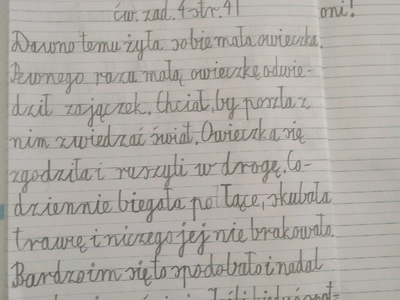 ćw. zad. 4 str. 41 oni!
Dawno temu żyła sobie mała owieczka.
Pewnego razu małą owieczkę odwie-
dził zajączek. Chciał, by poszła z
nim zwiedzać świat. Owieczka się
zgodziła i ruszyli w drogę. Co-
dziennie biegała po łące, skubała
trawę i niczego jej nie brakowało.
Bardzo im się to spodobało i nadal